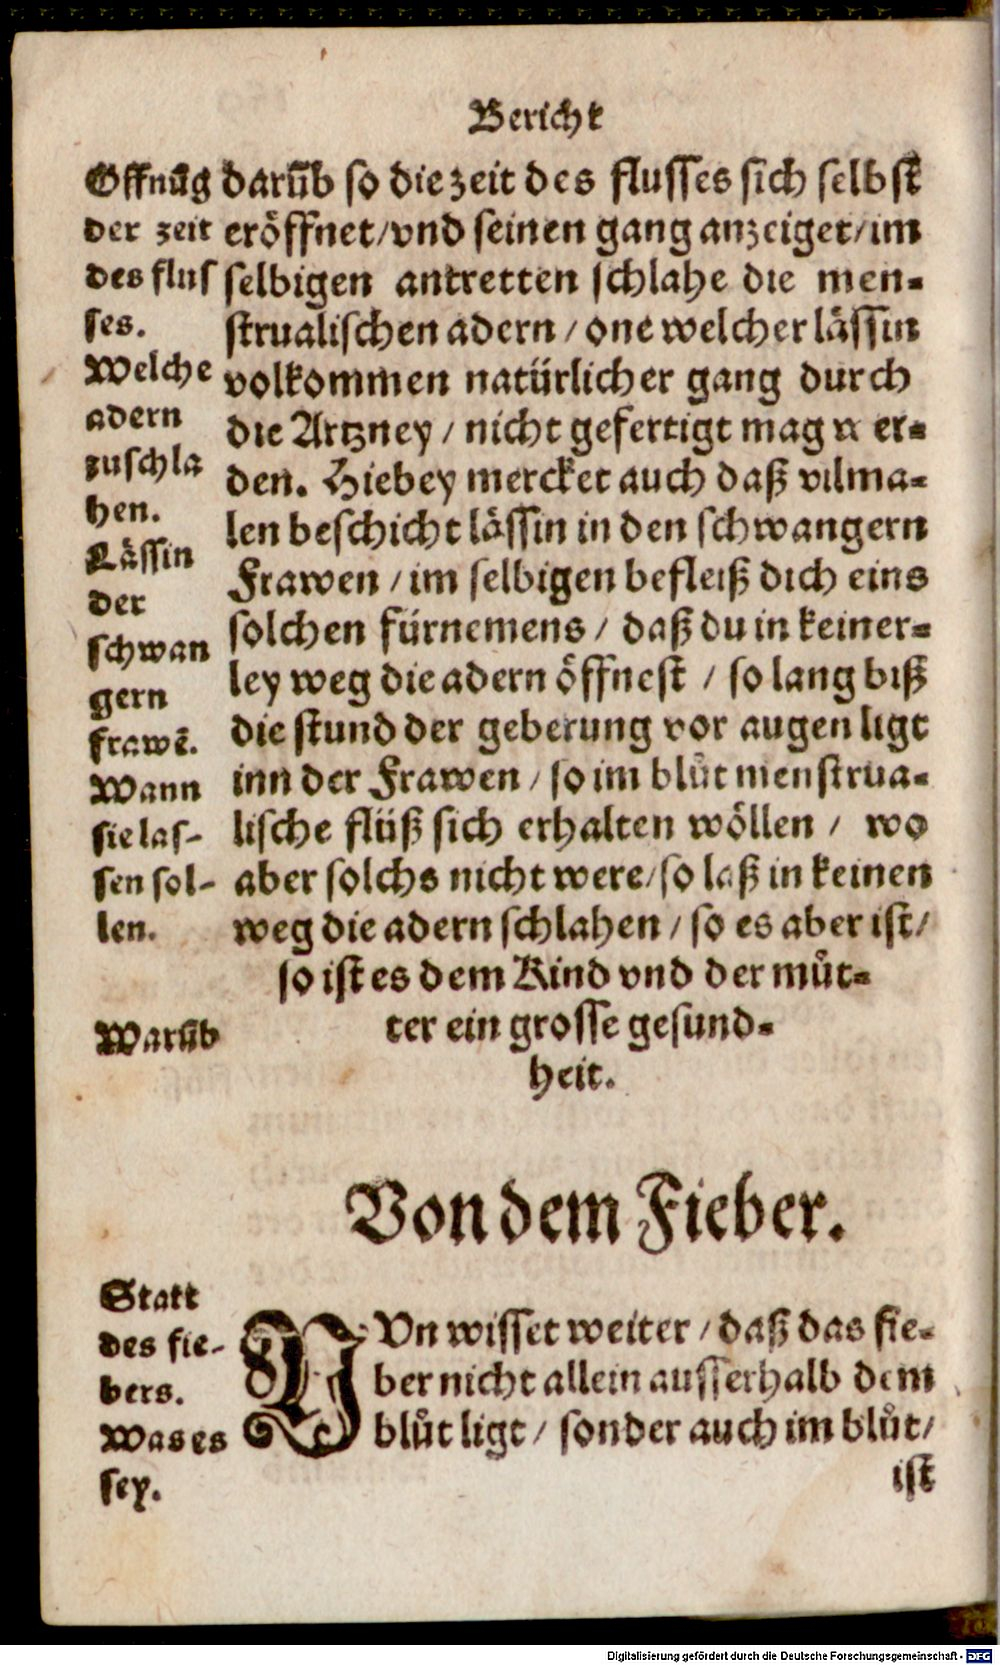 Bericht
Öffnūg
der zeit
des fluſ
ſes.
Welche
adern
zuſchla
hen.
Läſſin
der
ſchwan
gern
frawē.
Wann
ſie laſ-
ſen ſol-
len.
Warūb
darūb ſo die zeit des fluſſes ſich ſelbſt
eröffnet/vnd ſeinen gang anzeiget/im
ſelbigen antretten ſchlahe die men-
ſtrualiſchen adern / one welcher läſſin
volkommen natürlicher gang durch
die Artzney / nicht gefertigt mag wer-
den. Hiebey mercket auch daß vilma-
len beſchicht läſſin in den ſchwangern
Frawen / im ſelbigen befleiß dich eins
ſolchen fürnemens / daß du in keiner-
ley weg die adern öffneſt / ſo lang biß
die ſtund der geberung vor augen ligt
inn der Frawen / ſo im blůt menſtrua-
liſche flüß ſich erhalten wöllen / wo
aber ſolchs nicht were/ſo laß in keinen
weg die adern ſchlahen / ſo es aber iſt/
ſo iſt es dem Kind vnd der můt-
ter ein groſſe geſund-
heit.
Von dem Fieber.
Statt
des fie-
bers.
Was es
ſey.
NVn wiſſet weiter / daß das fie-
ber nicht allein auſſerhalb dem
blůt ligt / ſonder auch im blůt/
iſt
Digitalisierung gefördert durch die Deutsche Forschungsgemeinschaft - DFG